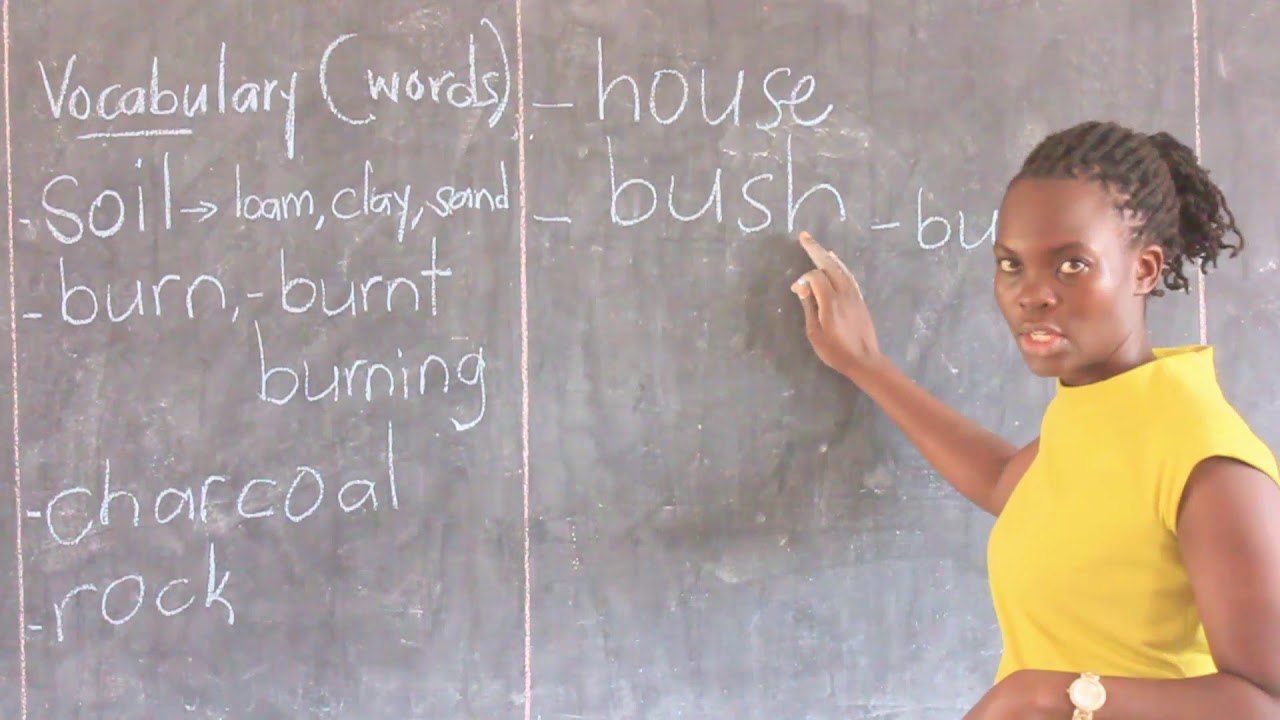 Vocabulary (words)
- soil → loam, clay, sand
- burn, - burnt
burning
- charcoal
- rock
- house
- bush - bu